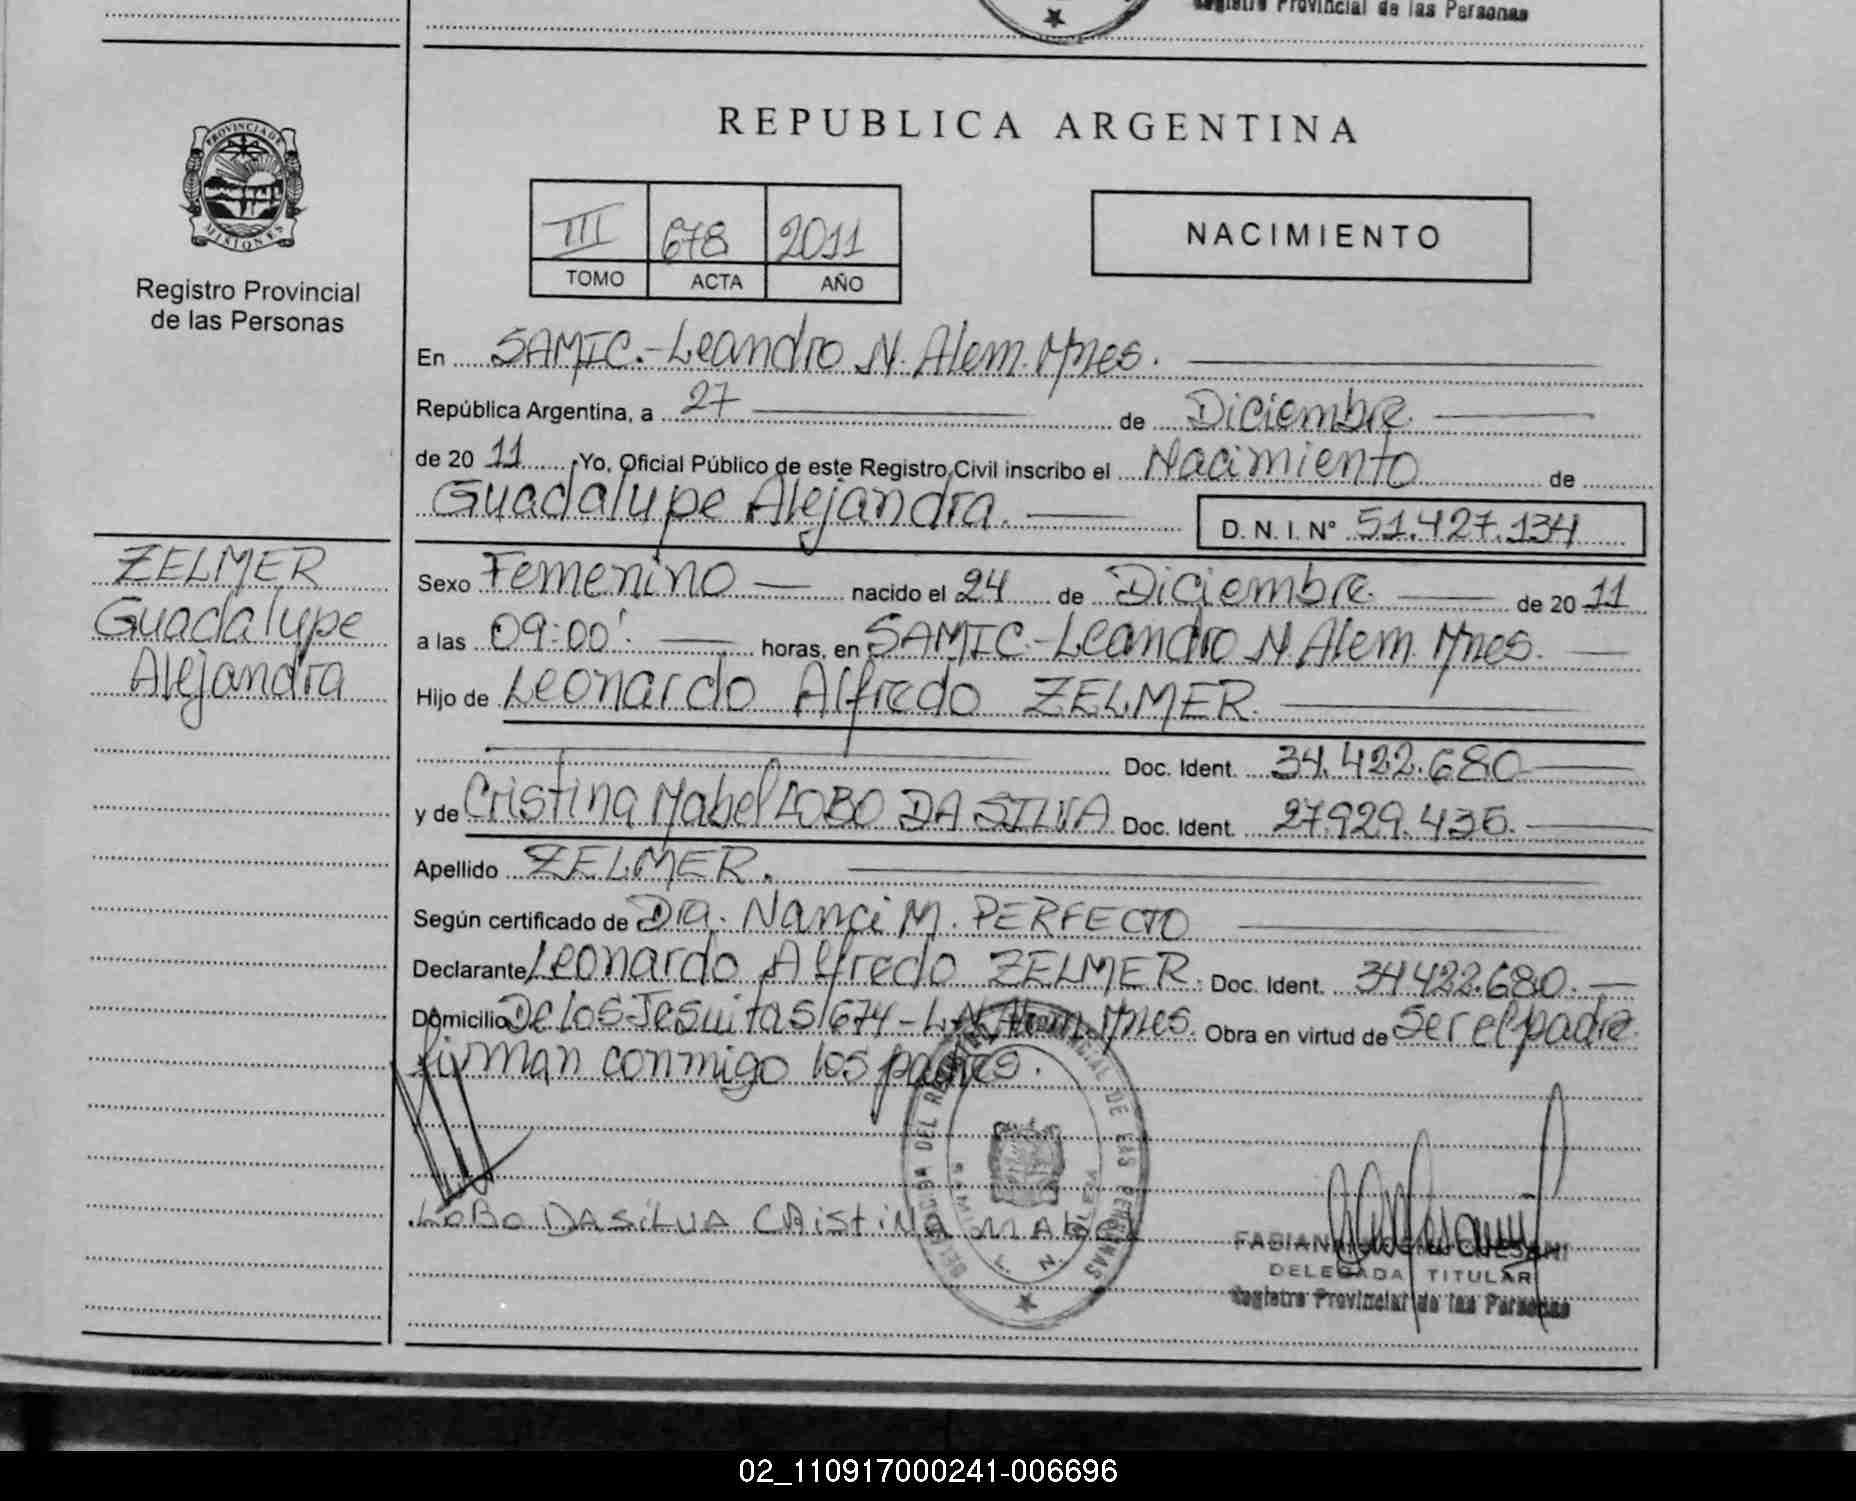 Registro Provincial de las Personas
PROVINCIA DE
MISIONES
Registro Provincial
de las Personas
REPUBLICA ARGENTINA
III 678 2011
TOMO ACTA AÑO
NACIMIENTO
En SAMIC.-Leandro N. Alem. Mnes.
República Argentina, a 27 de Diciembre
de 20 11 Yo, Oficial Público de este Registro Civil inscribo el Nacimiento de
Guadalupe Alejandra. D. N. I. N° 51.427.134
ZELMER
Guadalupe
Alejandra
Sexo Femenino nacido el 24 de Diciembre de 20 11
a las 09:00'. horas, en SAMIC.-Leandro N. Alem. Mnes.
Hijo de Leonardo Alfredo ZELMER.
Doc. Ident. 34.422.680
y de Cristina Mabel LOBO DA SILVA Doc. Ident. 27.929.436.
Apellido ZELMER.
Según certificado de Dra. Nanci M. PERFECTO
Declarante Leonardo Alfredo ZELMER. Doc. Ident. 34.422.680.
Domicilio De los Jesuitas 674 - L.N. Alem. Mnes. Obra en virtud de ser el padre
firman conmigo los padres.
LOBO DASILVA CRistiNa MAbel
DEL REGISTRO PROVINCIAL DE LAS PERSONAS
L. N. ALEM
DELEGADA TITULAR
Registro Provincial de las Personas
02_110917000241-006696